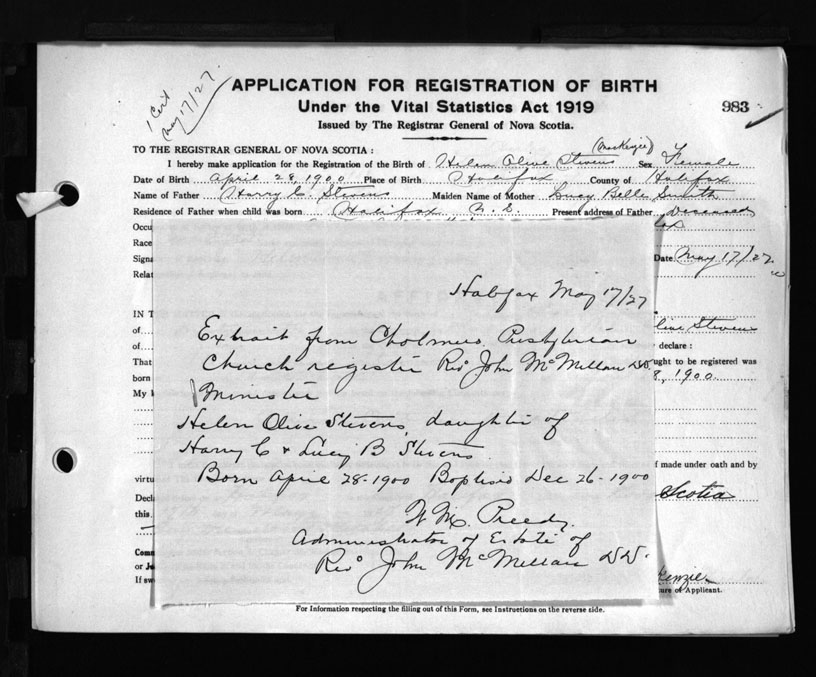 1 Cert
May 17/27.
APPLICATION FOR REGISTRATION OF BIRTH
Under the Vital Statistics Act 1919
983
Issued by The Registrar General of Nova Scotia.
TO THE REGISTRAR GENERAL OF NOVA SCOTIA :
(MacKenzie)
I hereby make application for the Registration of the Birth of Helen Olive Stevens Sex Female
Date of Birth April 28, 1900 Place of Birth Halifax County of Halifax
Name of Father Harry C. Stevens Maiden Name of Mother Lucy Belle Smith
Residence of Father when child was born Halifax N. S. Present address of Father Deceased
Occu
Race
Signa Date May 17/27.
Relat
Halifax May 17/27
IN T
of
live Stevens
of
declare :
Extrait from Chalmers Presbyterian
Church register Revd John McMillan DD.
Minister
That ught to be registered was
born 8, 1900.
My k
Helen Olive Stevens, daughter of
Harry C & Lucy B Stevens
Born April 28-1900 Baptised Dec 26-1900
f made under oath and by
virtu
Decla Scotia
this
W M. Preedy.
Administrator of Estate of
Revd John McMillan DD.
Comm
or Ju
If sw
kenzie
ure of Applicant.
For Information respecting the filling out of this Form, see Instructions on the reverse side.